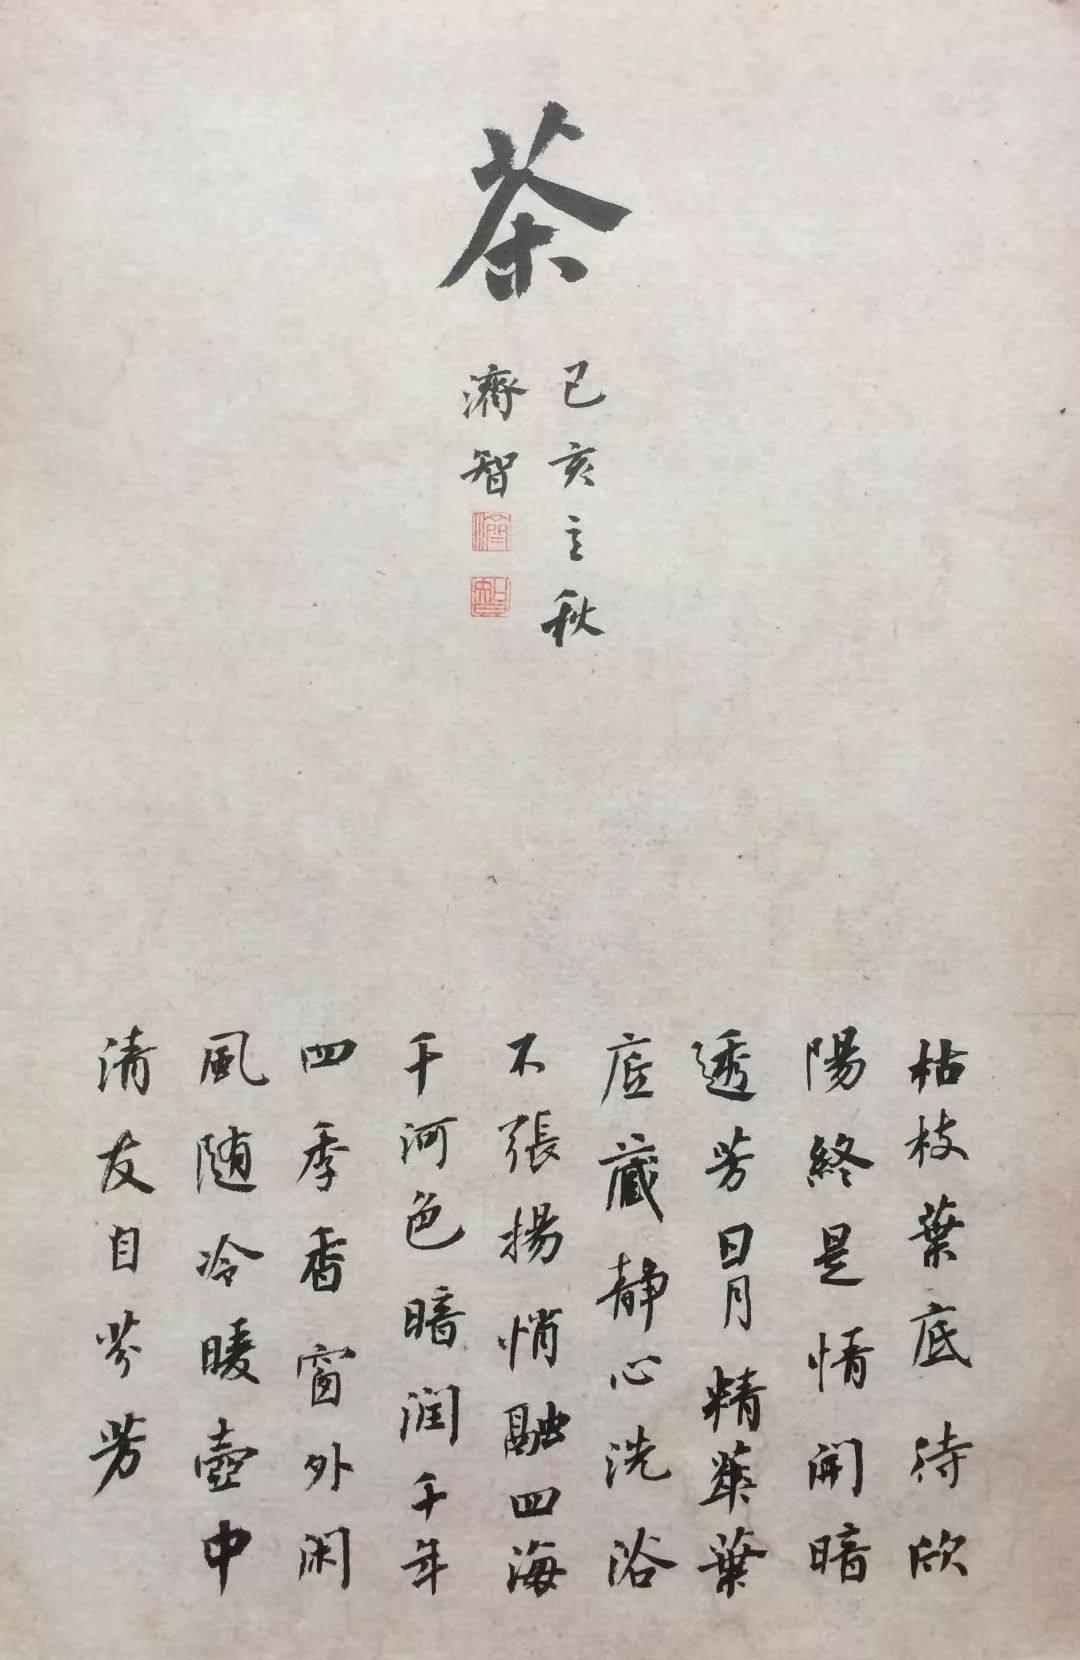 茶
己亥立秋
濟智
濟
智
枯枝葉底待欣
陽終是情開暗
透芳日月精華葉
底藏静心洗浴
不張揚悄融四海
千河色暗润千年
四季香窗外闲
風随冷暖壺中
清友自芬芳